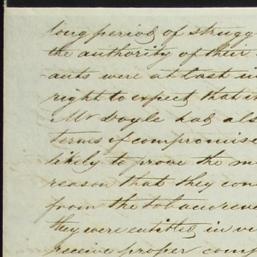 long period of strugg
the authority of their
ants were at last in
right to expect that in
Mr Doyle had als
terms of compromise
likely to prove the m
reason that they con
from the total reve
they were entitled in vi
receive proper comp